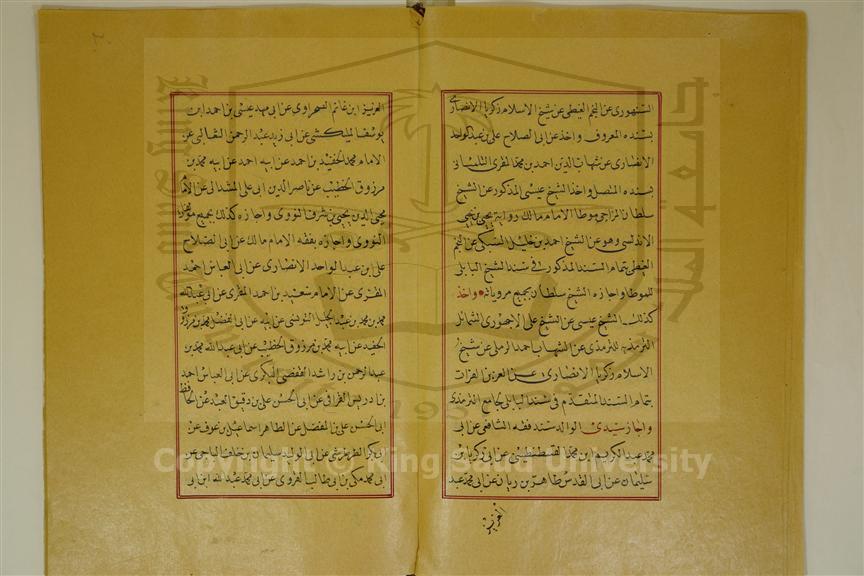 السنهورى عن النجم الغيطى عن شيخ الاسلام زكريا الانصارى
بسنده المعروف واخذ عن ابى الصلاح على بن عبد الواحد
الانصارى عن شهاب الدين احمد بن محمد المقرى التلمسانى
بسنده المتصل واخذ الشيخ عيسى المذكور عن الشيخ
سلطان المزاحى موطا الامام مالك رواية يحيى بن يحيى
الاندلسى وهو عن الشيخ احمد بن خليل السبكى عن النجم
الغيطى بتمام السند المذكور فى سند الشيخ البابلى
للموطا واجازه الشيخ سلطان بجميع مروياته واخذ
كذلك الشيخ عيسى عن الشيخ على الاجهورى الشمائل
الترمذية للترمذى عن الشهاب احمد الرملى عن شيخ
الاسلام زكريا الانصارى عن العز بن الفرات
بتمام السند المتقدم فى سند البابلى بجامع الترمذى
واجاز سيدى الوالد سند فقه الشافعى عن ابى
محمد عبد الكريم ابن محمد القسطنطينى عن ابى زكريا بن
سليمان عن ابى القدس طاهر بن زيان عن ابى محمد عبد
العزيز
العزيز ابن غانم السهراوى عن ابى مهد عيسى بن احمد ابن
عن ابى زيد عبد الرحمن الثعالبى عن
الامام محمد الحفيد بن احمد عن ابيه احمد عن ابيه محمد بن
مرزوق الخطيب عن ناصر الدين ابى على المشدالى عن الامام
محيى الدين يحيى بن شرف النووى واجازه كذلك بجميع
النووى واجازه بفقه الامام مالك عن ابى الصلاح
على ابن عبد الواحد الانصارى عن ابى العباس احمد
المقرى عن الامام سعيد بن احمد المقرى عن ابى عبد الله
محمد بن محمد بن عبد الجليل التونسى عن ابيه عن ابى الفضل محمد بن مرزوق
الحفيد عن ابيه محمد بن مرزوق الخطيب عن ابى عبد الله محمد بن
عبد الرحمن بن راشد القفصى البكرى عن ابى العباس احمد
بن ادريس القرافى عن ابى الحسن على بن دقيق العيد عن الحافظ
ابى الحسن على بن المفضل عن الطاهر اسماعيل بن عوف عن
ابى بكر الطرطوشى عن ابى الوليد سليمان بن خلف الباجى عن
ابى محمد مكى بن ابى طالب القروى عن ابى محمد عبد الله ابن ابى
جامعة الملك سعود
Copyright © King Saud University